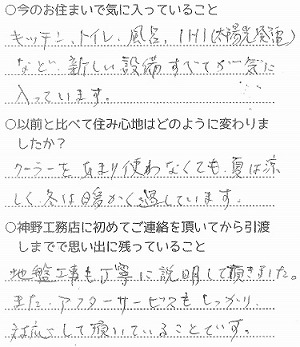 ○今のお住まいで気に入っていること
キッチン、トイレ、風呂、IHI(太陽光発電)
など、新しい設備すべてが気に
入っています。
○以前と比べて住み心地はどのように変わりま
したか？
クーラーをあまり使わなくても、夏は涼
しく、冬は暖かく過しています。
○神野工務店に初めてご連絡を頂いてから引渡
しまでで思い出に残っていること
地盤工事も丁寧に説明して頂きました。
また、アフターサービスもしっかり
対応して頂いていることです。